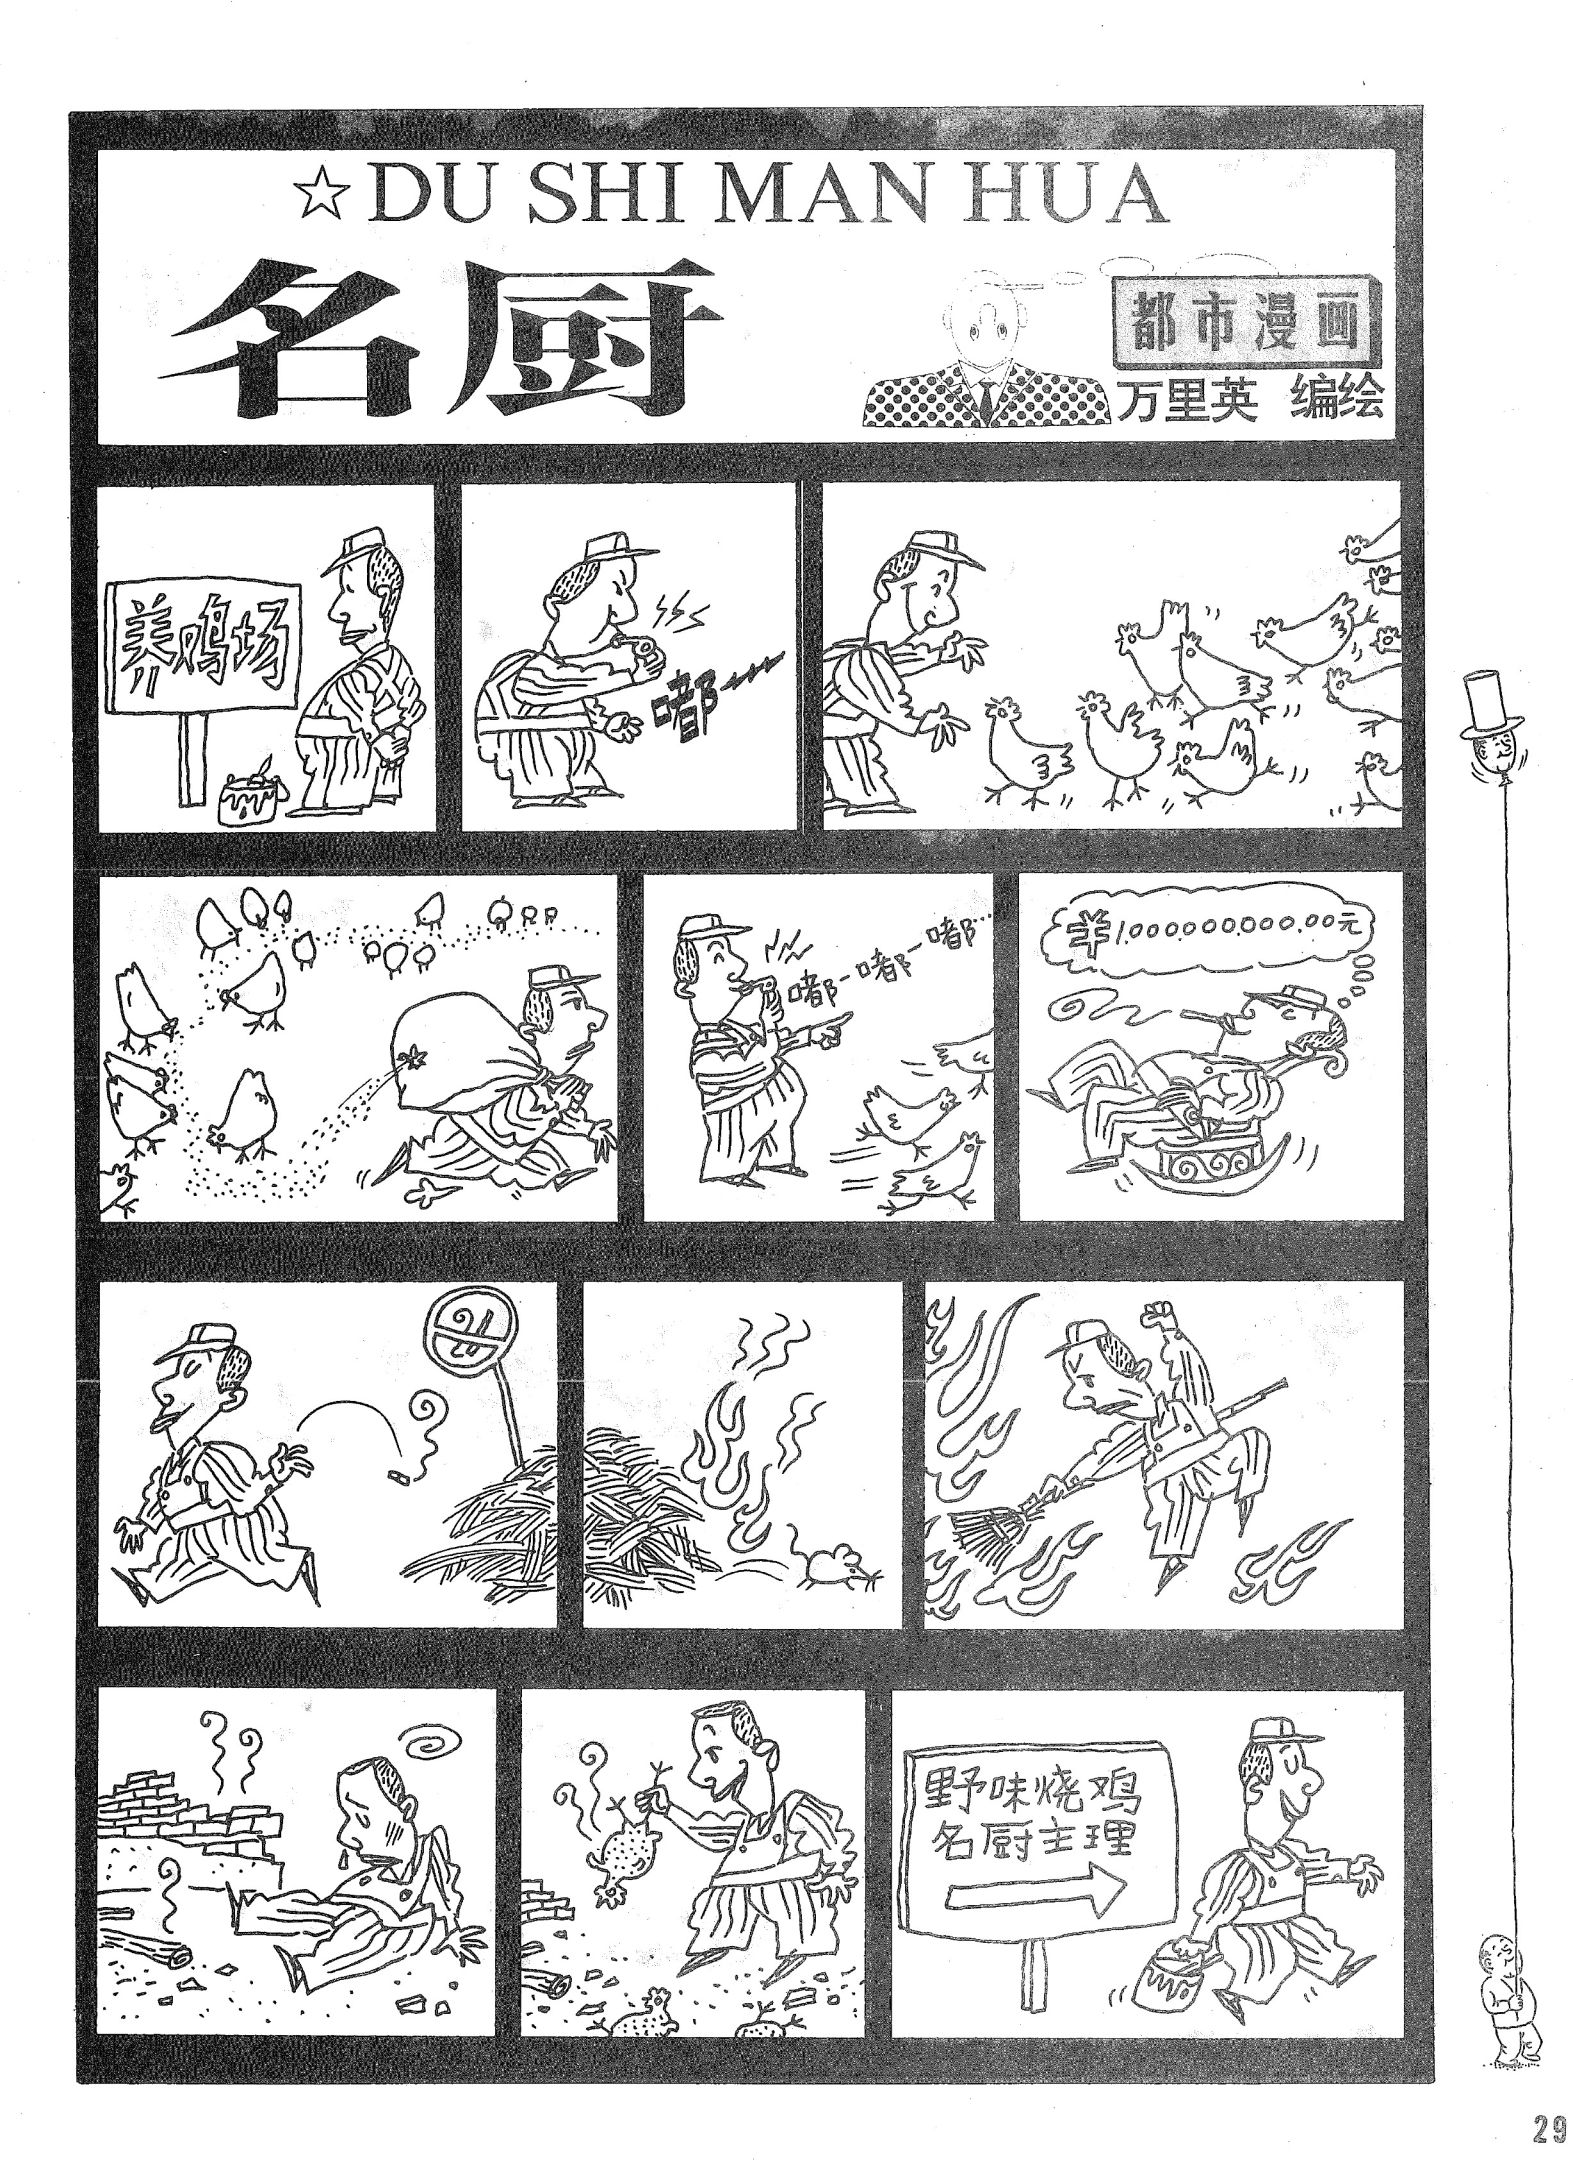 ☆DU SHI MAN HUA
名厨
都市漫画
万里英 编绘
养鸡场
嘟
嘟-嘟-嘟…
羊1.000000000.00元
野味烧鸡
名厨主理
29